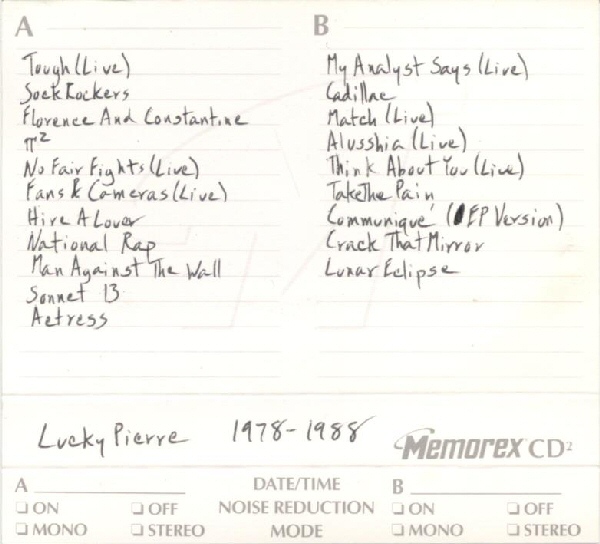 A
Tough (Live)
Sock Rockers
Florence And Constantine
π²
No Fair Fights (Live)
Fans & Cameras (Live)
Hire A Lover
National Rap
Man Against The Wall
Sonnet 13
Actress
B
My Analyst Says (Live)
Cadillac
Match (Live)
Alusshia (Live)
Think About You (Live)
Take The Pain
Communiqué (EP Version)
Crack That Mirror
Lunar Eclipse
Lucky Pierre 1978-1988
Memorex CD²
A DATE/TIME B
ON OFF NOISE REDUCTION ON OFF
MONO STEREO MODE MONO STEREO